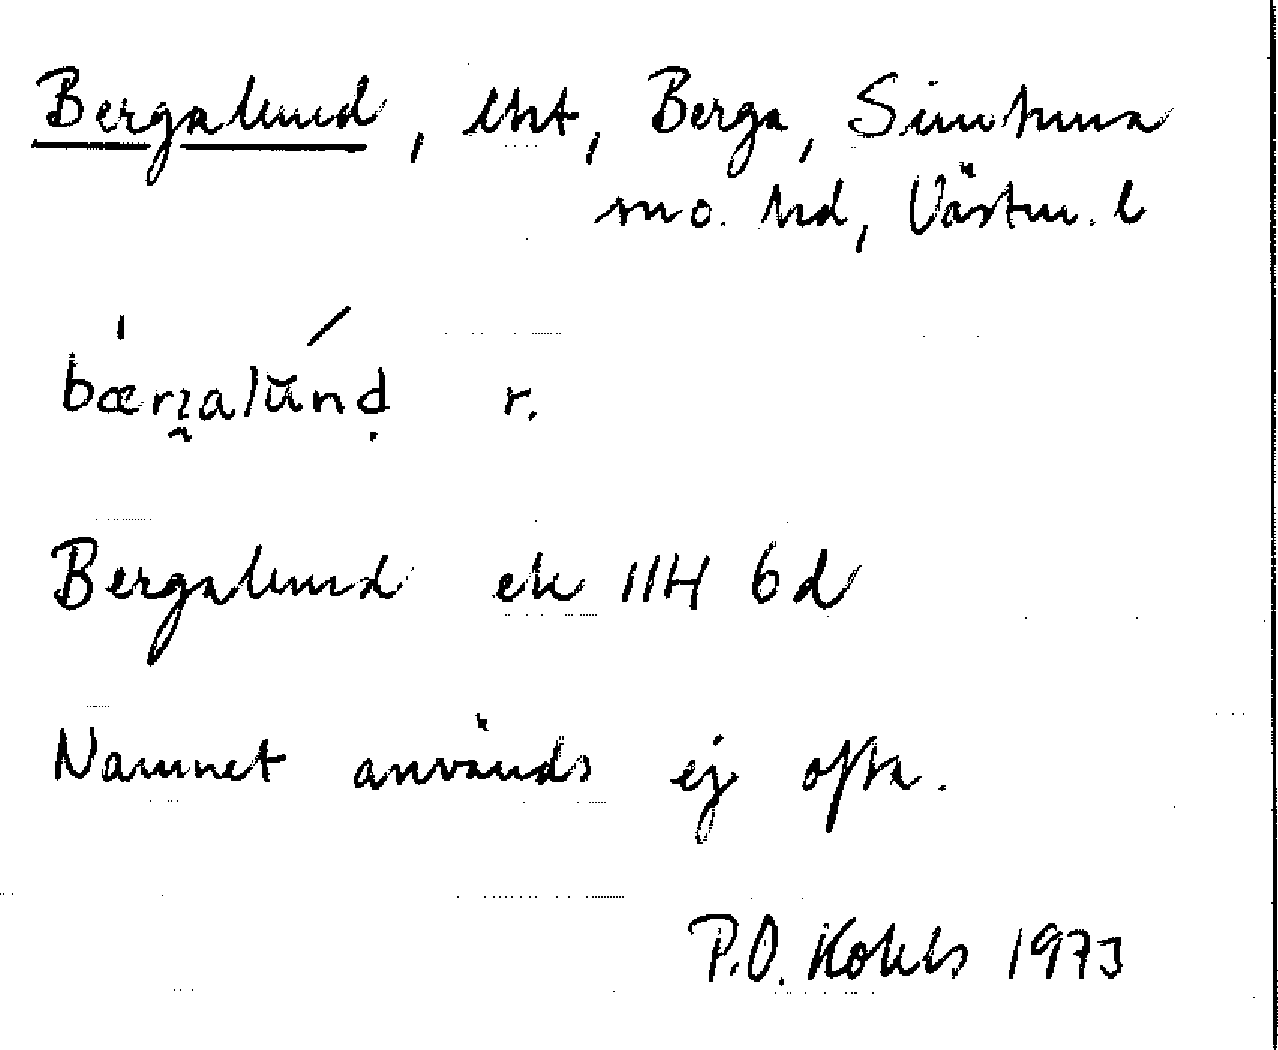 Bergalund, lht, Berga, Simtuna
sn o. hd, Västm. l
bærgalŭnd r.
Bergalund ek 11H 6d
Namnet används ej ofta.
P.O. 1973